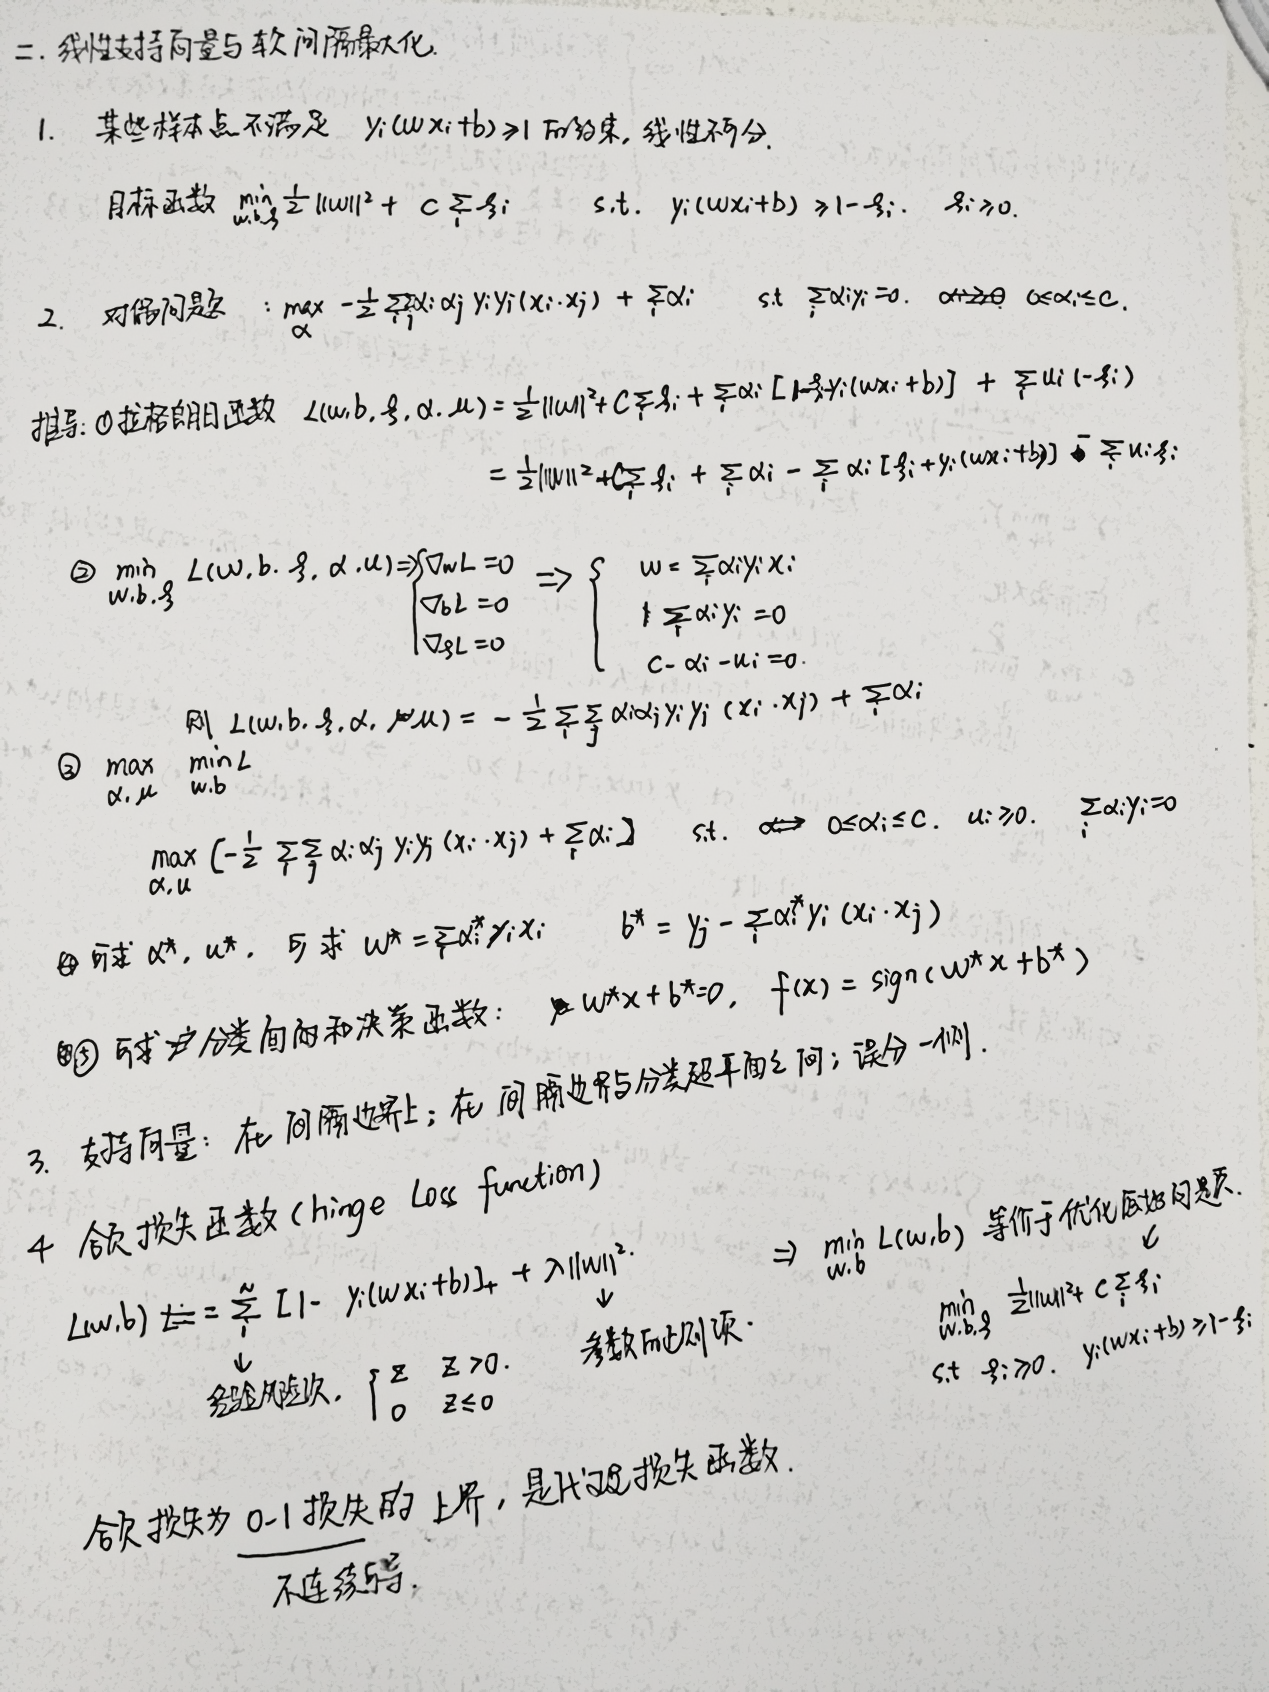 二. 线性支持向量与软间隔最大化.
1. 某些样本点不满足 yi(wxi+b)≥1 的约束, 线性不可分.
目标函数 min w.b.ξ ½||w||² + C Σi ξi s.t. yi(wxi+b) ≥1-ξi. ξi≥0.
2. 对偶问题 : max α -½ Σi Σj αi αj yi yj (xi·xj) + Σi αi s.t Σi αiyi=0. 0≤αi≤C.
推导: ①拉格朗日函数 L(w.b.ξ.α.μ) = ½||w||² + C Σi ξi + Σi αi [1-ξi-yi(wxi+b)] + Σi ui (-ξi)
= ½||w||² + C Σi ξi + Σi αi - Σi αi [ξi+yi(wxi+b)] - Σi uiξi
② min w.b.ξ L(w.b.ξ.α.u) ⇒ { ∇wL=0 ⇒ { w = Σi αiyixi
∇bL=0 Σi αiyi =0
∇ξL=0 C-αi-ui=0.
则 L(w.b.ξ.α.μ) = -½ Σi Σj αiαjyiyj (xi·xj) + Σi αi
③ max α.μ min w.b L
max α.u [-½ Σi Σj αi αj yi yj (xi·xj) + Σi αi] s.t. 0≤αi≤C. ui≥0. Σi αiyi=0
④ 可求 α*, u*, 可求 w* = Σi αi* yi xi b* = yj - Σi αi* yi (xi·xj)
⑤ 可求 分类间隔和决策函数: w*x+b*=0, f(x) = sign(w*x+b*)
3. 支持向量: 在间隔边界上; 在间隔边界与分类超平面之间; 误分一侧.
4 合页损失函数 (hinge Loss function)
L(w.b) = Σi N [1- yi(wxi+b)]+ + λ||w||². ⇒ min w.b L(w.b) 等价于优化原始问题.
↓ ↓ ↓
经验风险项. { z z>0. 参数的正则项. min w.b.ξ ½||w||²+ C Σi ξi
0 z≤0 s.t ξi≥0. yi(wxi+b)≥1-ξi
合页损失为 0-1 损失的上界, 是代理损失函数.
不连续可导.